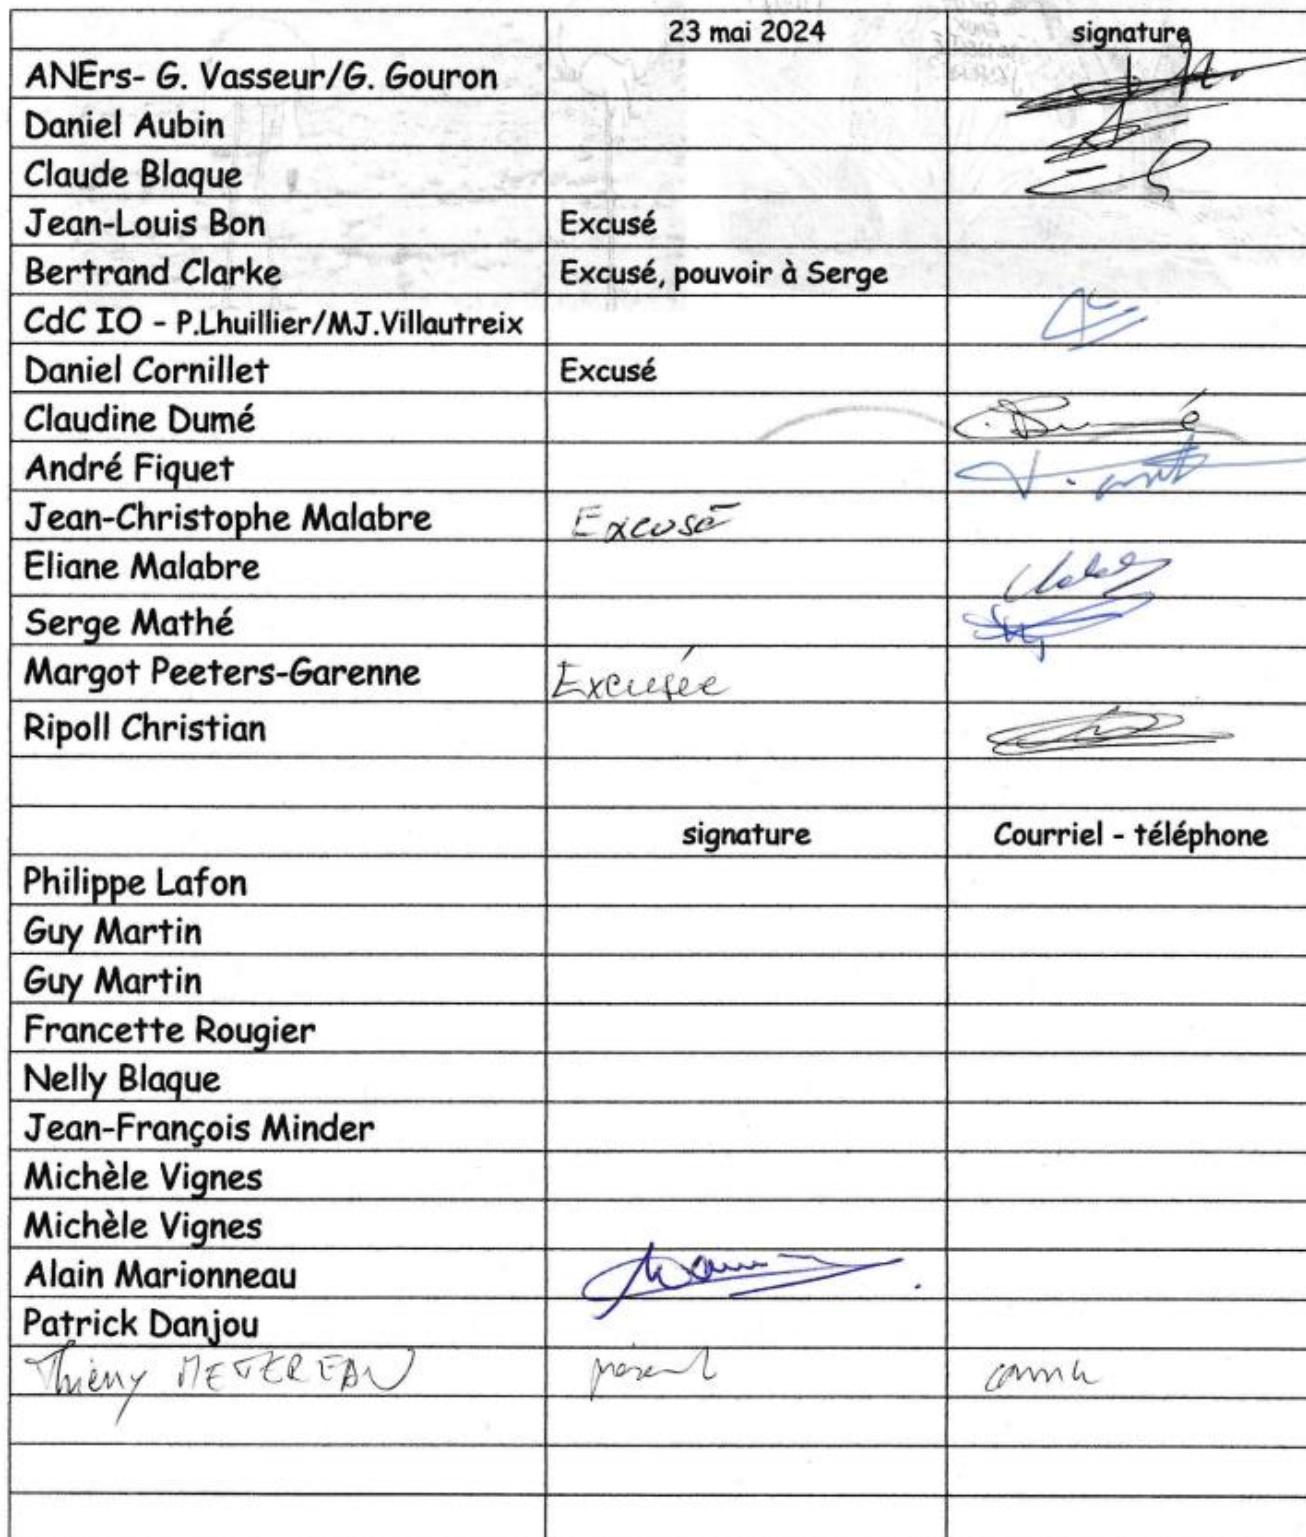 23 mai 2024 signature
ANErs- G. Vasseur/G. Gouron
Daniel Aubin
Claude Blaque
Jean-Louis Bon Excusé
Bertrand Clarke Excusé, pouvoir à Serge
CdC IO - P.Lhuillier/MJ.Villautreix
Daniel Cornillet Excusé
Claudine Dumé C. Dumé
André Fiquet
Jean-Christophe Malabre Excusé
Eliane Malabre
Serge Mathé
Margot Peeters-Garenne Excusée
Ripoll Christian
signature Courriel - téléphone
Philippe Lafon
Guy Martin
Guy Martin
Francette Rougier
Nelly Blaque
Jean-François Minder
Michèle Vignes
Michèle Vignes
Alain Marionneau
Patrick Danjou
Thierry METEREAU présent